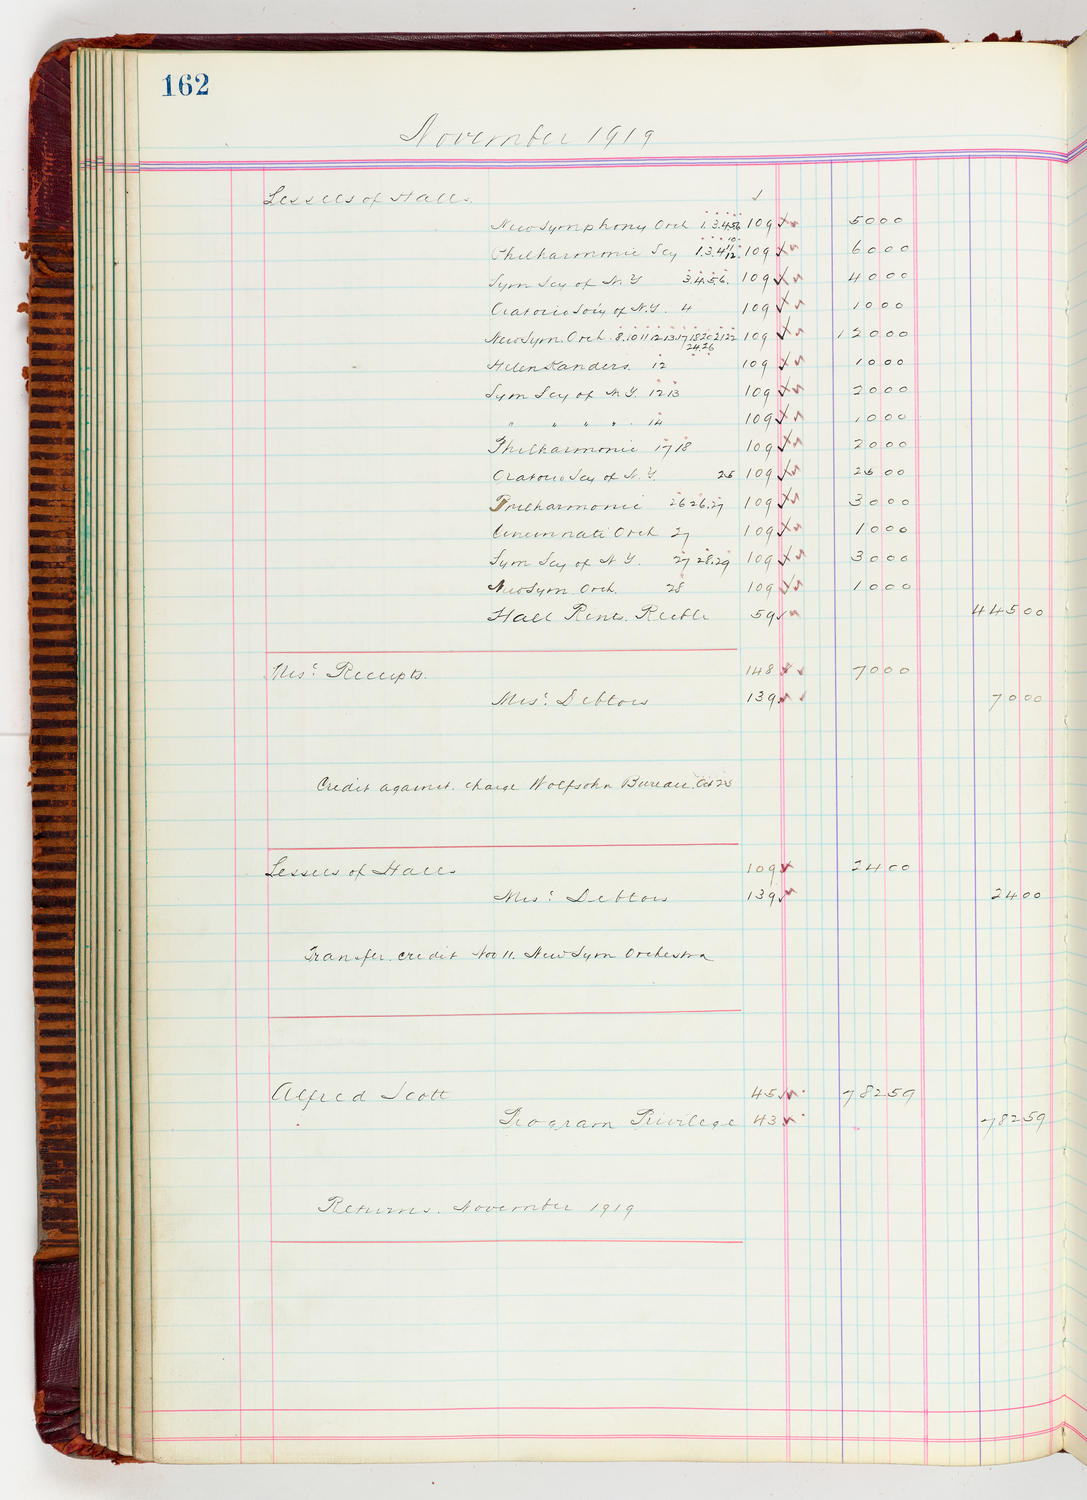 162
November 1919
Lessees of Hall. ✓
New Symphony Orch 1.3.4.5.6 109 5000
10. 11
Philharmonic Scy 1.3.4. 12. 109 6000
Sym Scy of N.Y 3.4.5.6. 109 4000
Oratorio Soc'y of N.Y. 4 109 1000
New Sym. Orch. 8.10 11 12 13.17 18 20 21 22 109 12000
24.26
Helen Sanders. 12 109 1000
Sym Scy of N.Y. 12 13 109 2000
" " " " . 14 109 1000
Philharmonic 17 18 109 2000
Oratorio Scy of N.Y. 25 109 2500
Philharmonic 26 26.27 109 3000
Cincinnati Orch 27 109 1000
Sym Scy of N.Y. 27 28.29 109 3000
New Sym. Orch. 28 109 1000
Hall Rents. Rectle 59 44500
Mis: Receipts. 148 7000
Mis: Debtors 139 7000
Credit against. charge Wolfsohn Bureau. Oct 25
Lessees of Hall 109 2400
Mis: Debtors 139 2400
Transfer. credit Nov 11. New Sym Orchestra
Alfred Scott 45 78259
Program Privilege 43 78259
Returns. November 1919